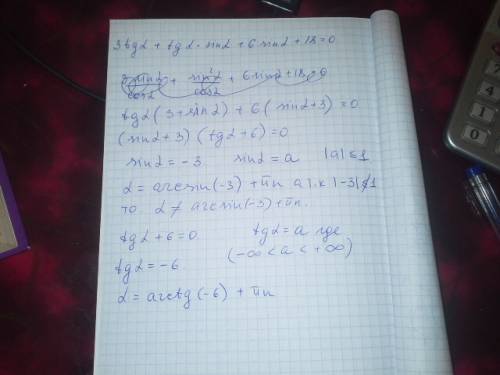 3tgα + tgα · sinα + 6 sinα + 18 = 0
3 sinα/cosα + sin²α/cosα + 6 sinα + 18 = 0
tgα (3 + sinα) + 6 (sinα + 3) = 0
(sinα + 3) (tgα + 6) = 0
sinα = -3 sinα = a |a| ≤ 1
α = arcsin(-3) + πn а т.к |-3| ≰ 1
то α ≠ arcsin(-3) + πn.
tgα + 6 = 0 tgα = a где
(-∞ < a < +∞)
tgα = -6
α = arctg(-6) + πn
4
1
0